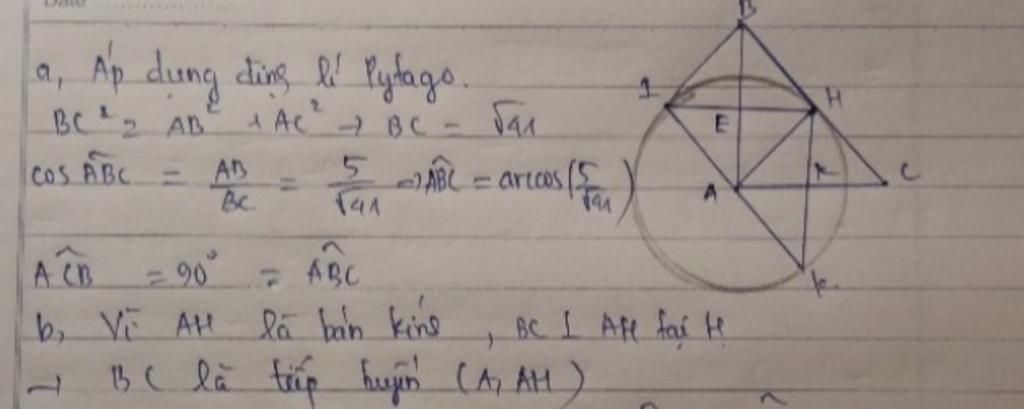 Date
B
a, Áp dụng định lí Pytago.
I H
BC² = AB² + AC² → BC = √41
E
cos ABC = AB/BC = 5/√41 → ABC = arccos(5/√41)
A K C
ACB = 90° = ABC
K
b, Vì AH là bán kính, BC ⊥ AH tại H
→ BC là tiếp tuyến (A, AH)